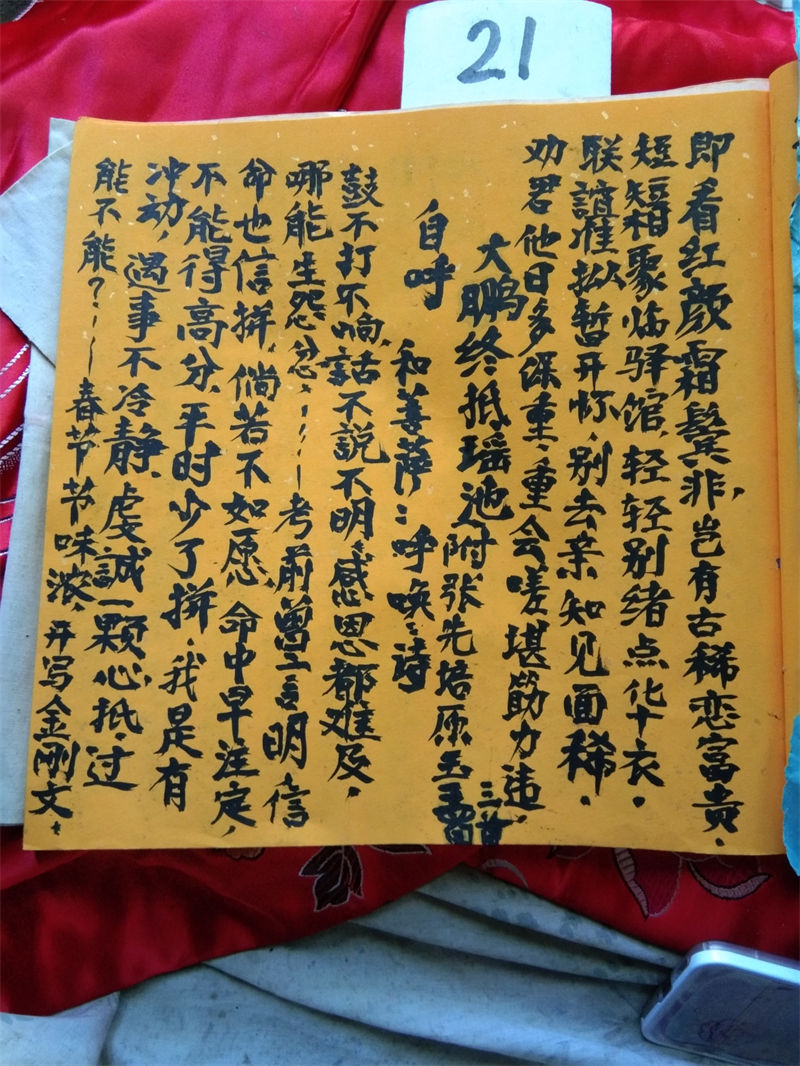 21
即看红颜霜鬓非，岂有古稀恋富贵.
短短相聚临驿馆，轻轻别绪点化十衣.
联谊准拟暂开怀，别去亲知见面稀.
劝君他日多保重，重会嗟堪筋力违，
大鹏终抵瑶池 附张先培原玉 三首
自呼 和菩萨：呼唤：诗
鼓不打不响，話不说不明，感恩都难及，
哪能生怨忿，——考前曾言明 信
命也信拼，倘若不如愿，命中早注定，
不能得高分，平时少了拼，我是有
冲动，遇事不冷静，虔誠一颗心，抵过
能不能？——春节节味浓，开写金刚文.